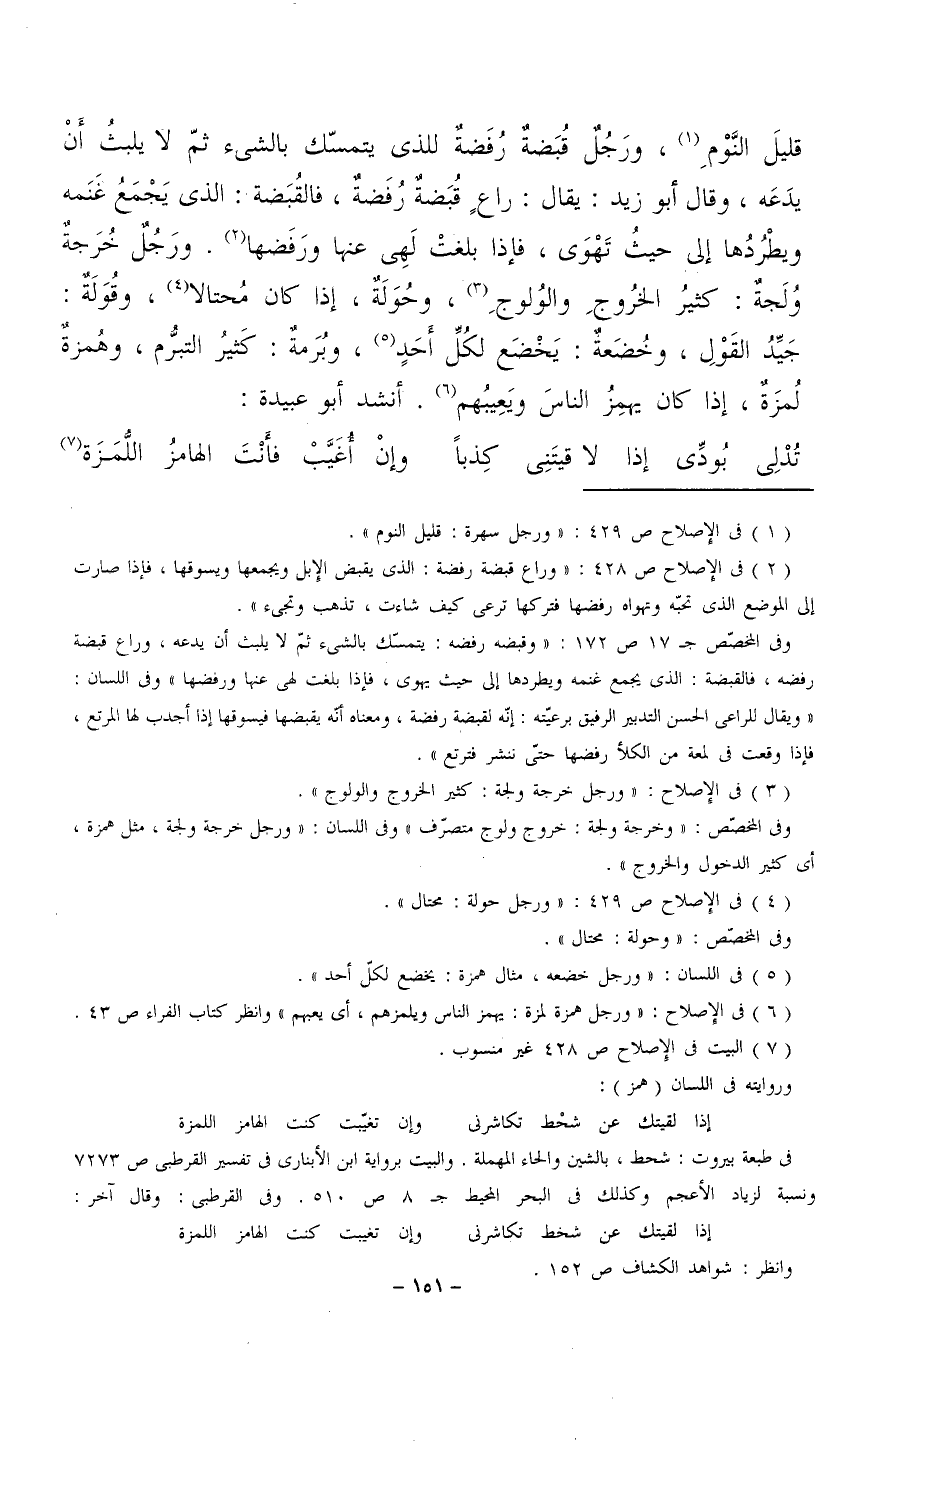 قليلَ النَّوْمِ(١) ، ورَجُلٌ قُبَضةٌ رُفَضةٌ للذى يتمسّك بالشىء ثمّ لا يلبثُ أَنْ
يدَعَه ، وقال أبو زيد : يقال : راعٍ قُبَضةٌ رُفَضةٌ ، فالقُبَضة : الذى يَجْمَعُ غَنَمه
ويطْرُدُها إلى حيثُ تَهْوَى ، فإذا بلغتْ لَهِى عنها ورَفَضها(٢) . ورَجُلٌ خُرَجةٌ
وُلَجةٌ : كثيرُ الخُروجِ والوُلوجِ(٣) ، وحُوَلَةٌ ، إذا كان مُحتالا(٤) ، وقُوَلَةٌ :
جَيِّدُ القَوْلِ ، وخُضَعةٌ : يَخْضَع لكُلِّ أَحَدٍ(٥) ، وبُرَمة : كَثيرُ التبرُّم ، وهُمزةٌ
لُمزَةٌ ، إذا كان يهمِزُ الناسَ ويَعِيبُهم(٦) . أنشد أبو عبيدة :
تُدْلِى بُودِّى إذا لاقيتَنِى كِذباً وإنْ أُغَيَّبْ فأَنْتَ الهامزُ اللُّمَـزَة(٧)
( ١ ) فى الإصلاح ص ٤٢٩ : « ورجل سهرة : قليل النوم » .
( ٢ ) فى الإصلاح ص ٤٢٨ : « وراع قبضة رفضة : الذى يقبض الإبل ويجمعها ويسوقها ، فإذا صارت
إلى الموضع الذى تحبّه وتهواه رفضها فتركها ترعى كيف شاءت ، تذهب وتجىء » .
وفى المخصّص جـ ١٧ ص ١٧٢ : « وقبضه رفضه : يتمسّك بالشىء ثمّ لا يلبث أن يدعه ، وراع قبضة
رفضه ، فالقبضة : الذى يجمع غنمه ويطردها إلى حيث يهوى ، فإذا بلغت لهى عنها ورفضها » وفى اللسان :
« ويقال للراعى الحسن التدبير الرفيق برعيّته : إنّه لقبضة رفضة ، ومعناه أنّه يقبضها فيسوقها إذا أجدب لها المرتع ،
فإذا وقعت فى لمعة من الكلأ رفضها حتّى ننشر فترتع » .
( ٣ ) فى الإصلاح : « ورجل خرجة ولجة : كثير الخروج والولوج » .
وفى المخصّص : « وخرجة ولجة : خروج ولوج متصرّف » وفى اللسان : « ورجل خرجة ولجة ، مثل همزة ،
أى كثير الدخول والخروج » .
( ٤ ) فى الإصلاح ص ٤٢٩ : « ورجل حولة : محتال » .
وفى المخصّص : « وحولة : محتال » .
( ٥ ) فى اللسان : « ورجل خضعه ، مثال همزة : يخضع لكلّ أحد » .
( ٦ ) فى الإصلاح : « ورجل همزة لمزة : يهمز الناس ويلمزهم ، أى يعبهم » وانظر كتاب الفراء ص ٤٣ .
( ٧ ) البيت فى الإصلاح ص ٤٢٨ غير منسوب .
وروايته فى اللسان ( همز ) :
إذا لقيتك عن شحْط تكاشرنى وإن تغيّبت كنت الهامز اللمزة
فى طبعة بيروت : شحط ، بالشين والحاء المهملة . والبيت برواية ابن الأبنارى فى تفسير القرطبى ص ٧٢٧٣
ونسبة لزياد الأعجم وكذلك فى البحر المحيط جـ ٨ ص ٥١٠ . وفى القرطبى : وقال آخر :
إذا لقيتك عن شخط تكاشرنى وإن تغيبت كنت الهامز اللمزة
وانظر : شواهد الكشاف ص ١٥٢ .
- ١٥١ -